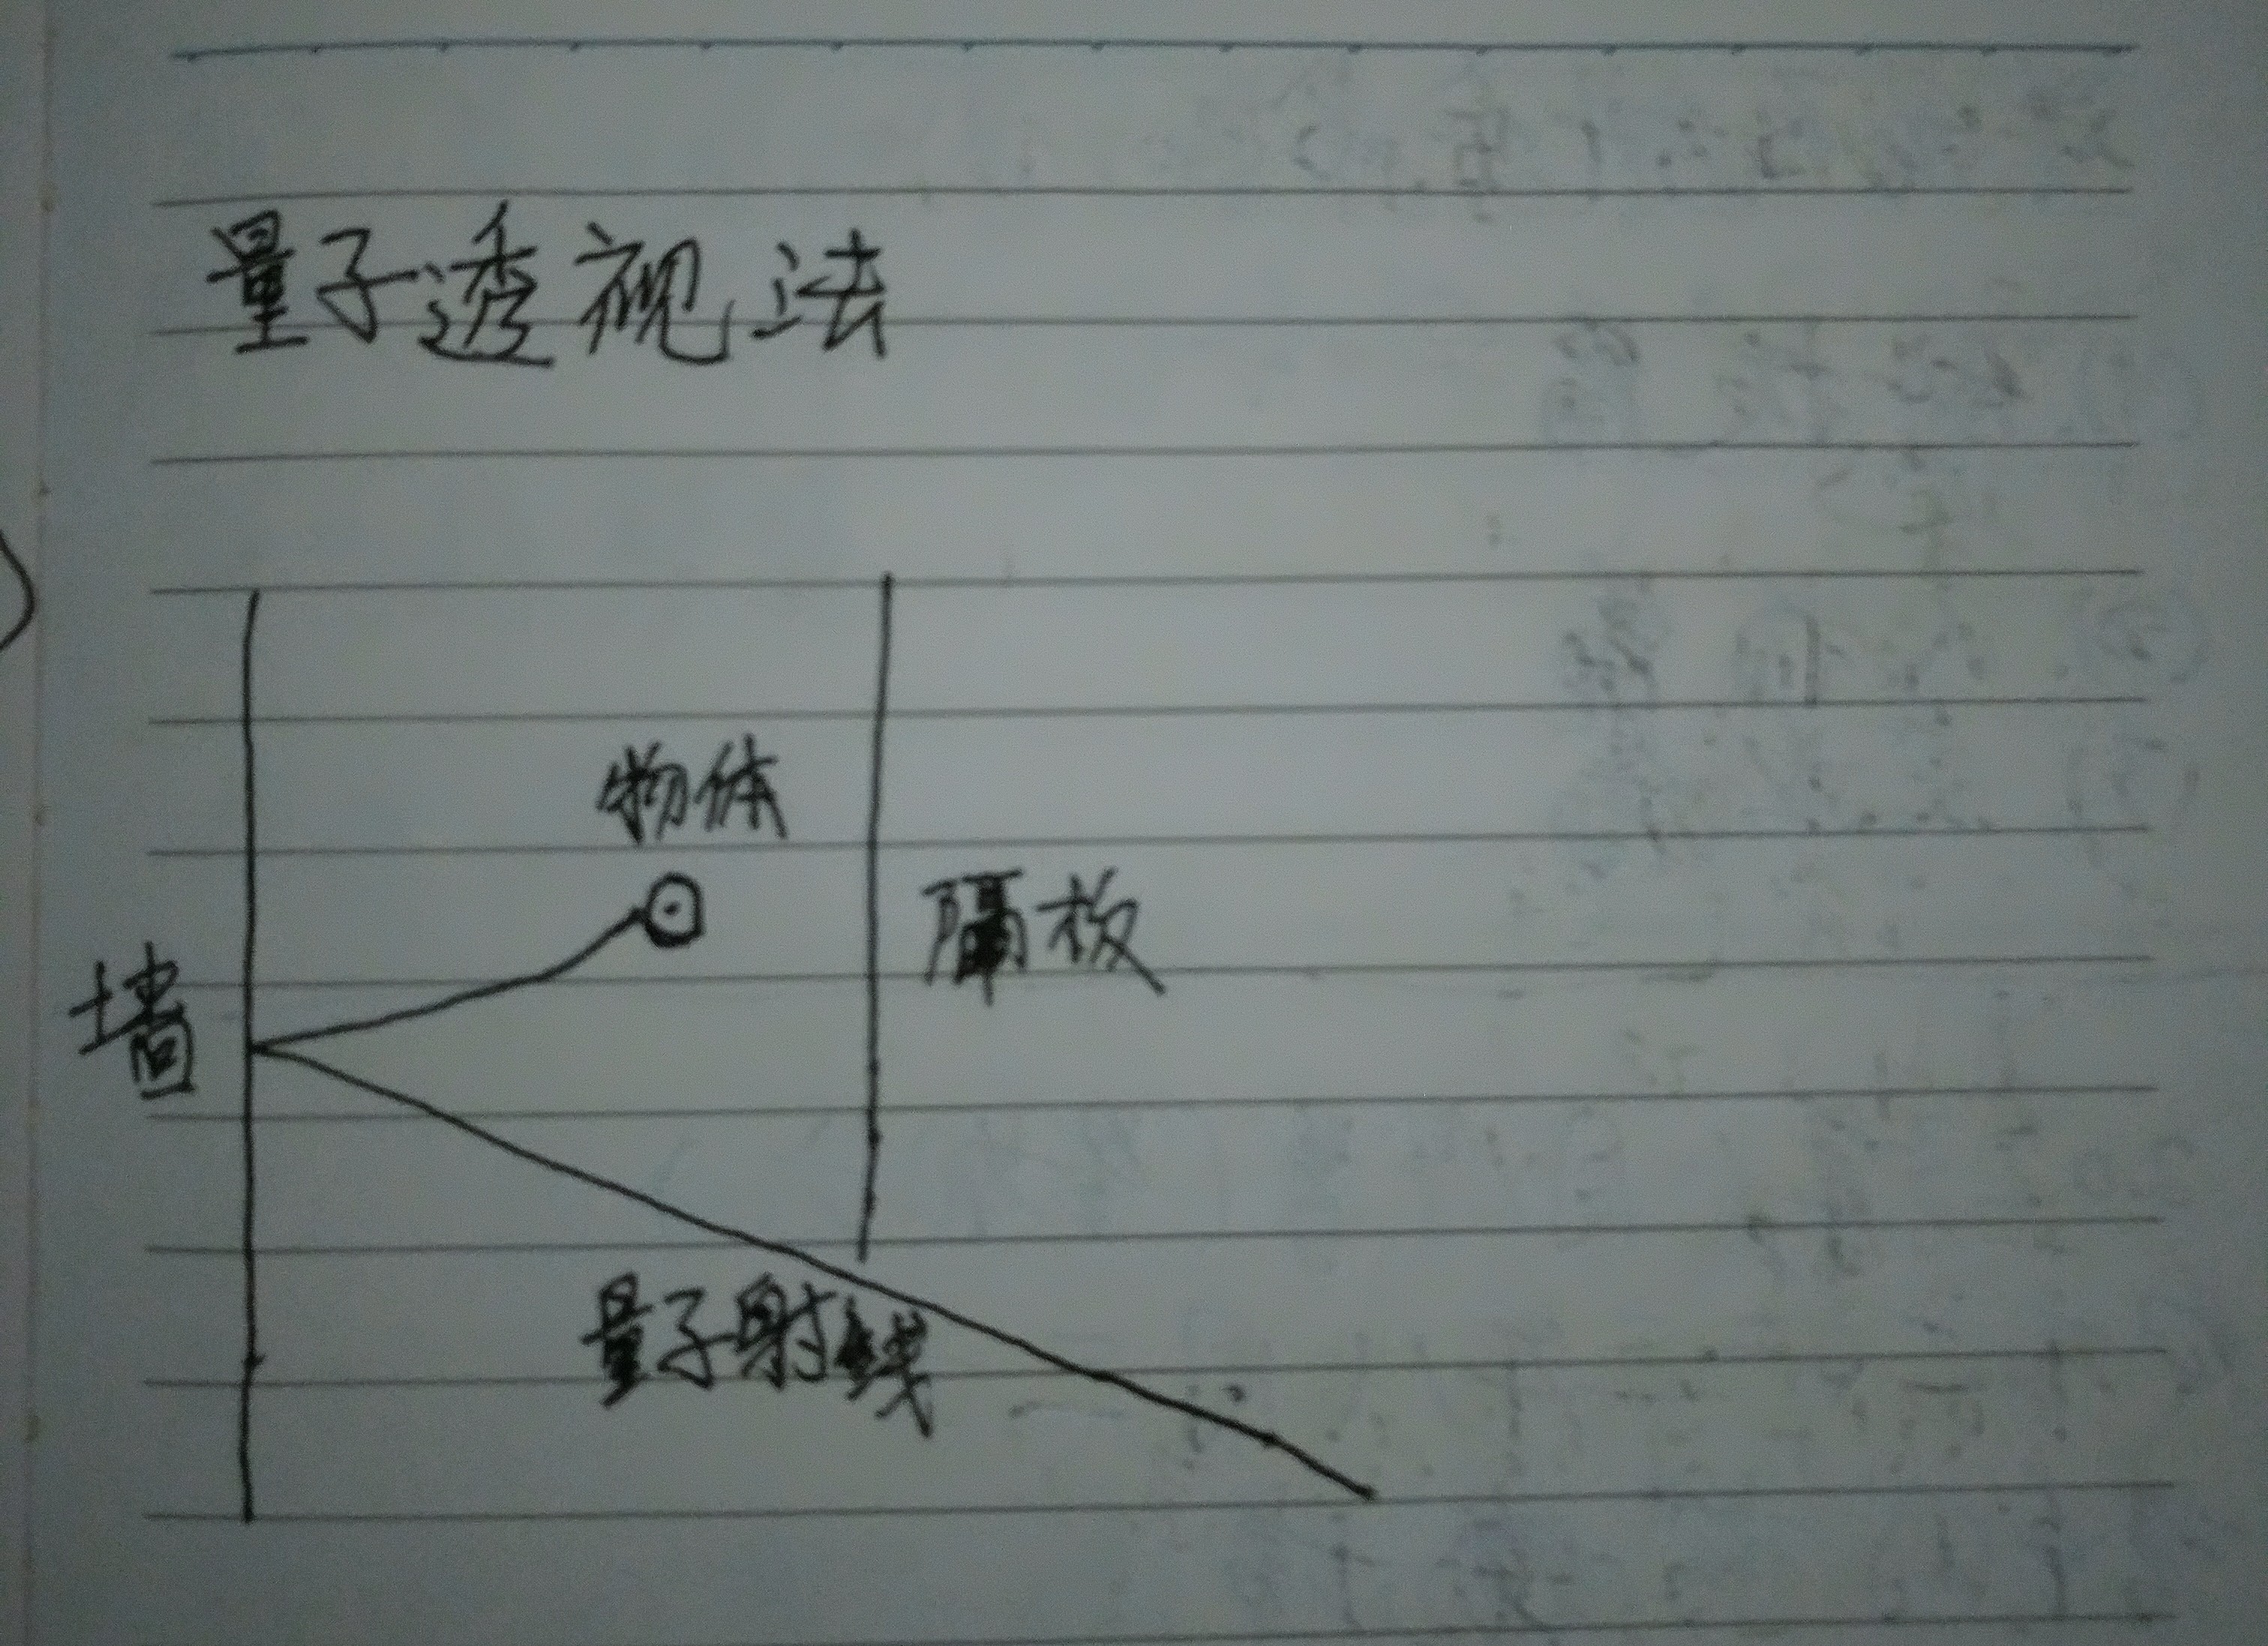 量子透视法
物体
隔板
墙
量子射线